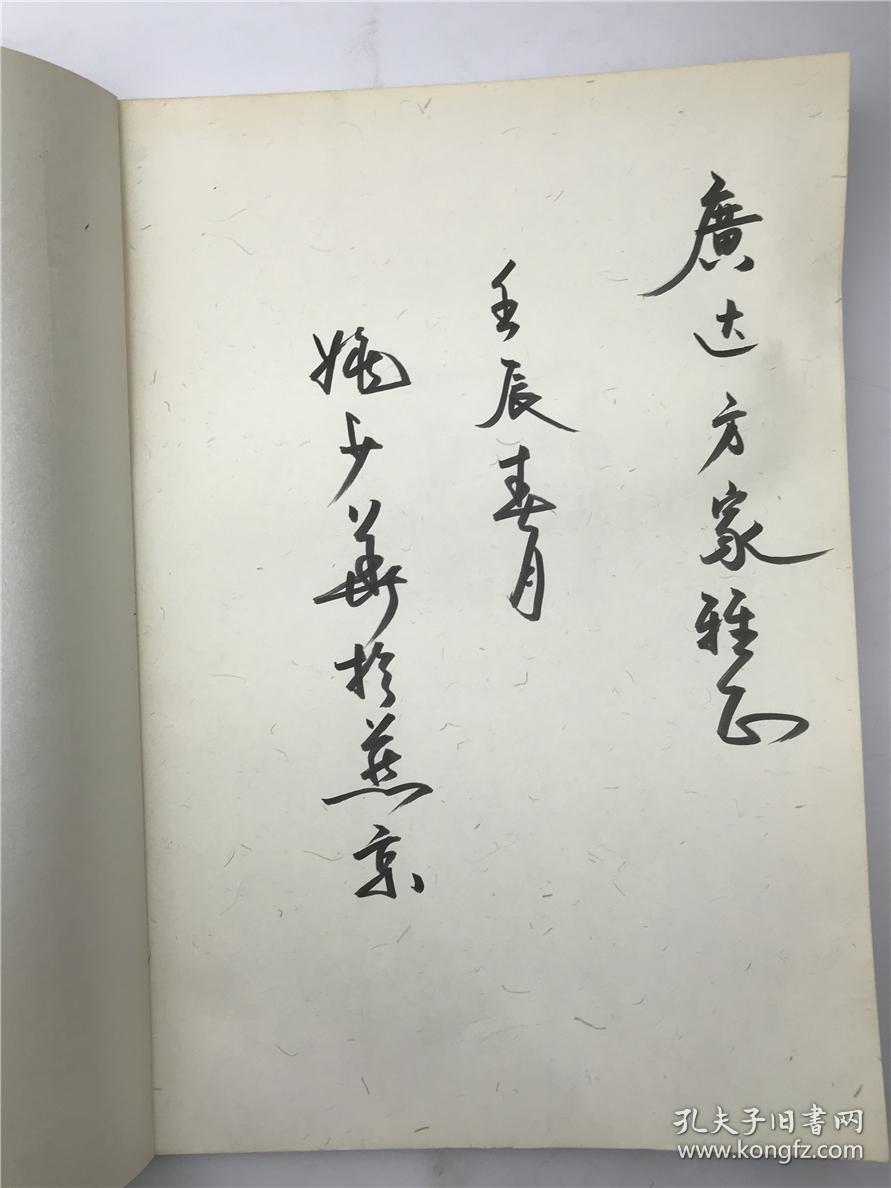 廣达方家雅正
壬辰春月
姚少華於燕京
孔夫子旧书网
www.kongfz.com